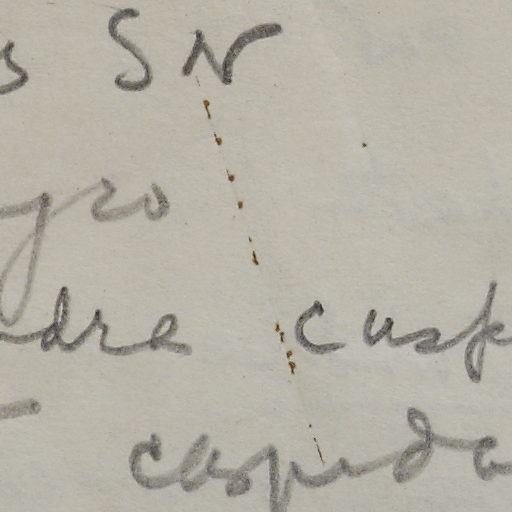 s SN
gro
dre cusp
cuspida